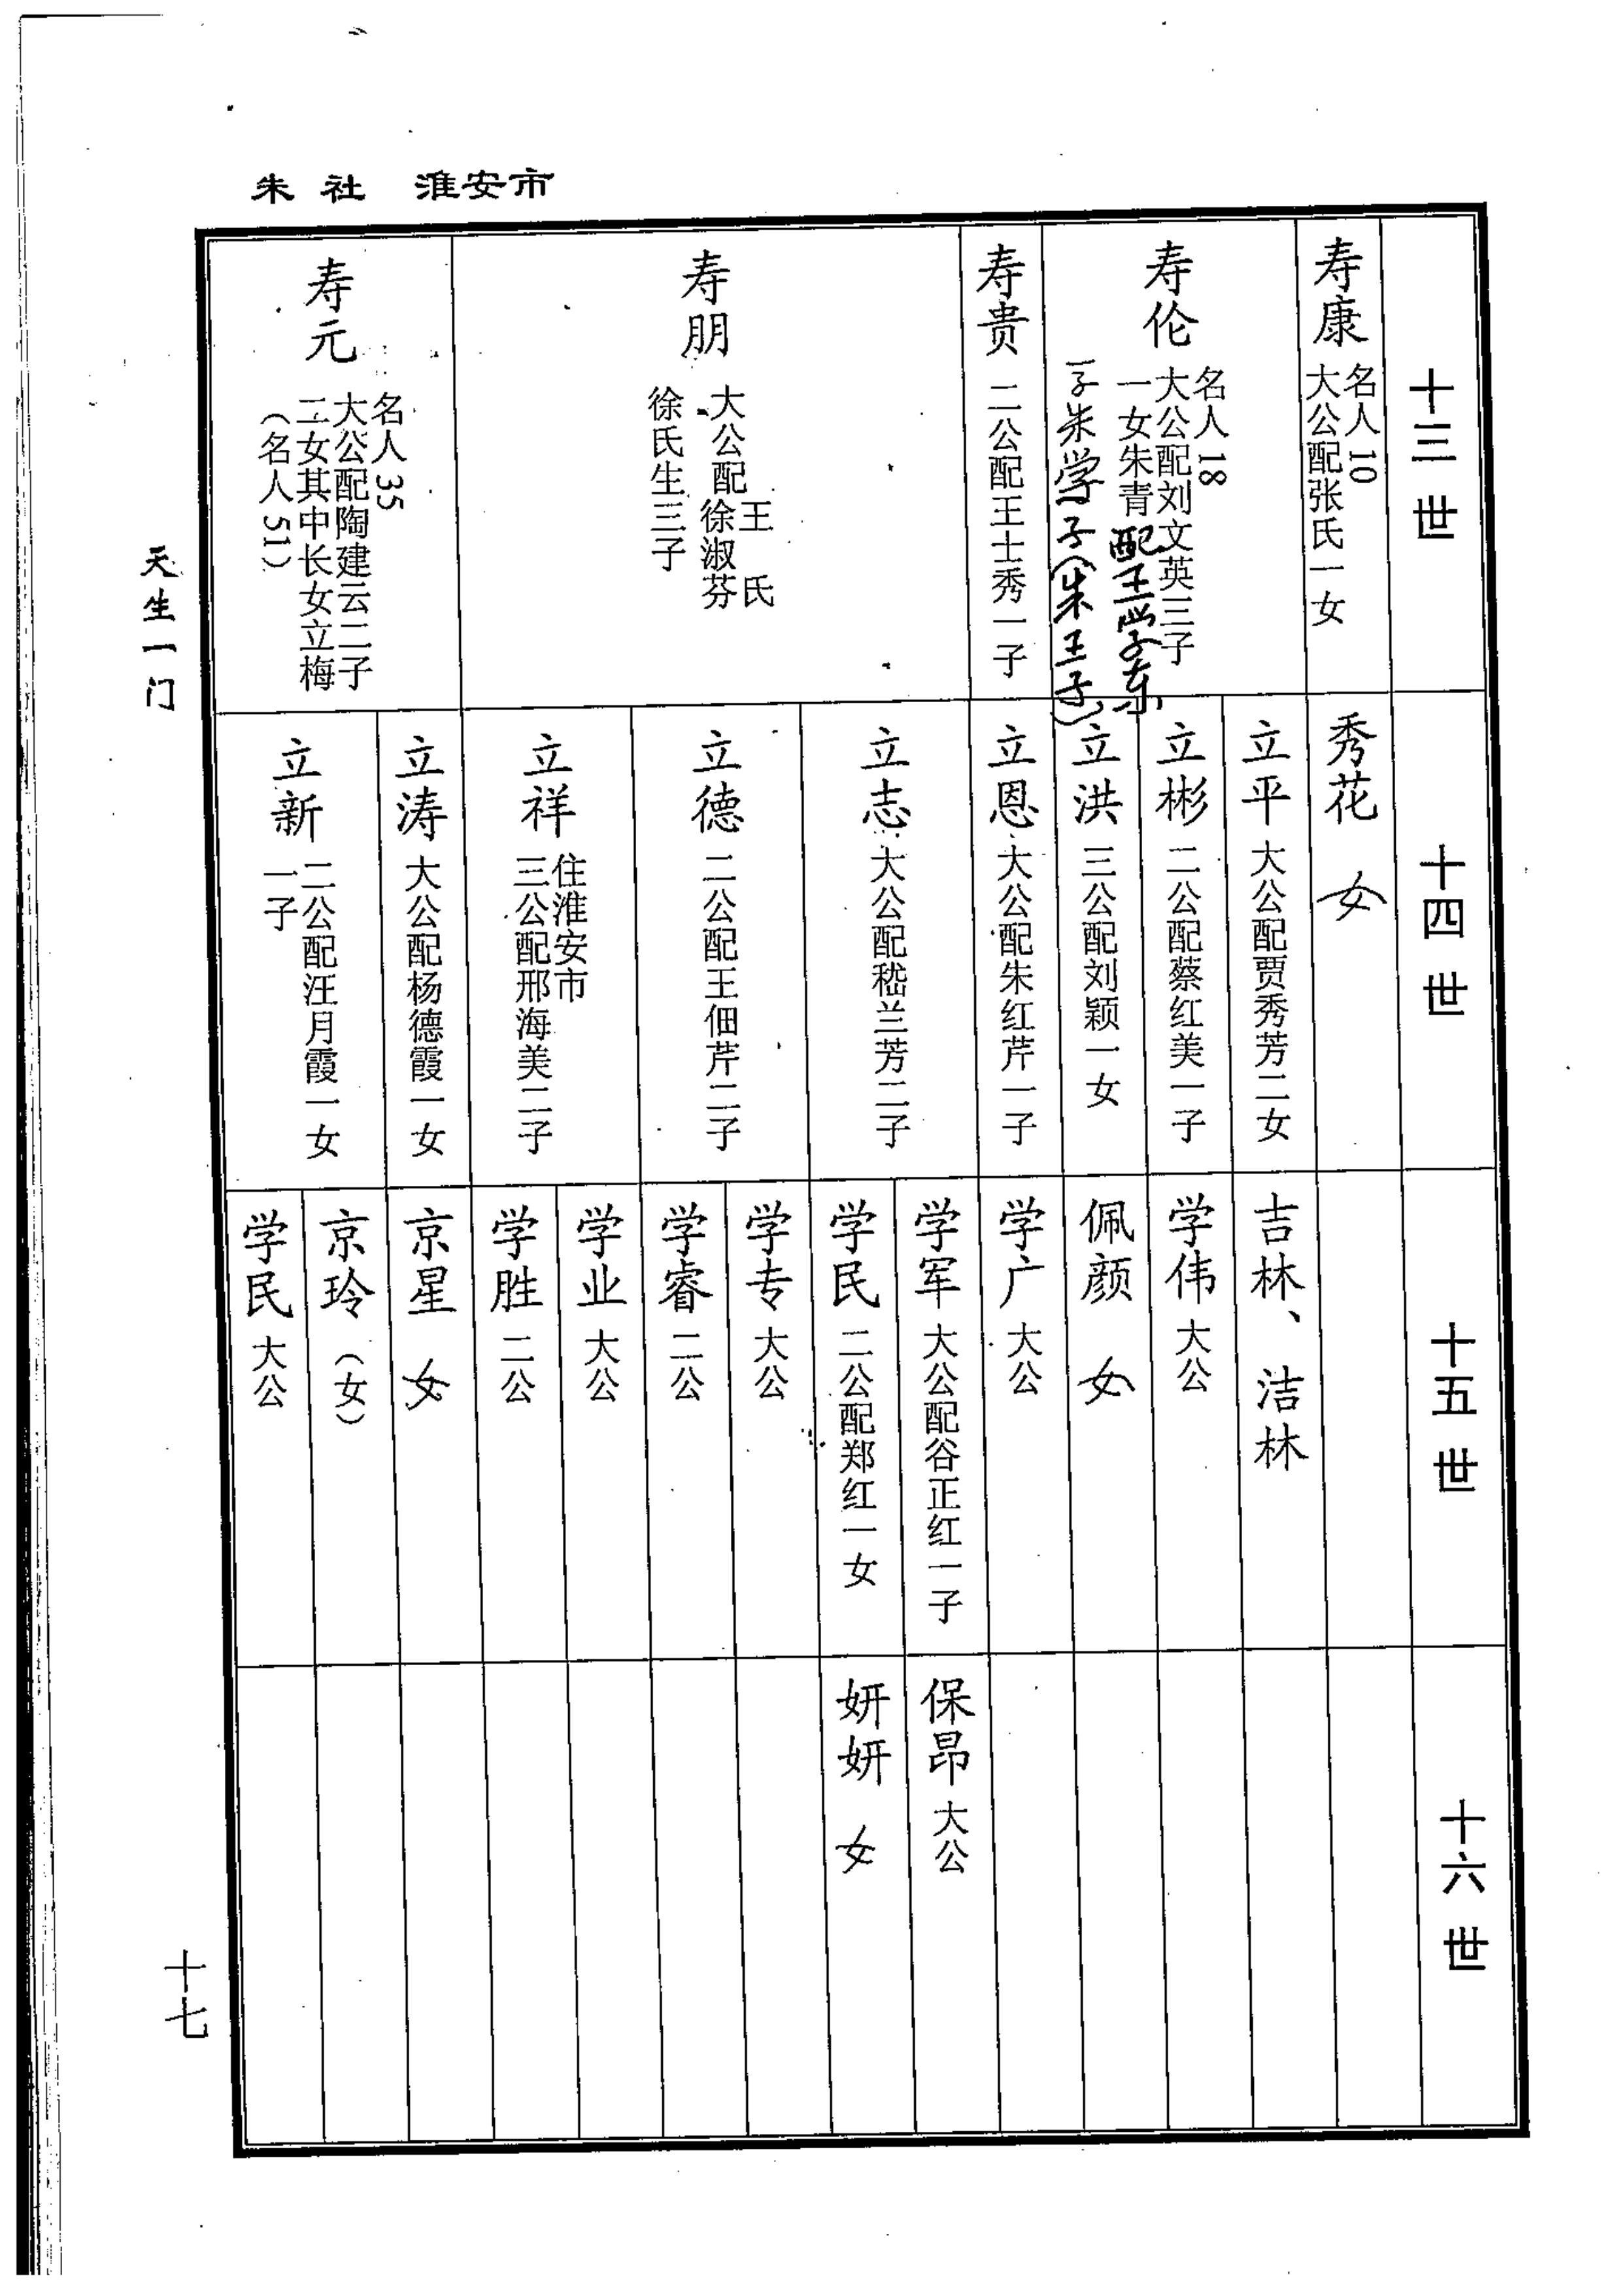 朱社 淮安市
十三世
寿康
名人10
大公配张氏一女
寿伦
名人18
大公配刘文英三子
一女朱青 配王学东
一子朱学子(朱王子)
寿贵 二公配王士秀一子
寿朋
大公配 王氏
徐淑芬
徐氏生三子
寿元
名人35
大公配陶建云二子
二女其中长女立梅
（名人51）
十四世
秀花 女
立平 大公配贾秀芳二女
立彬 二公配蔡红美一子
立洪 三公配刘颖一女
立恩 大公配朱红芹一子
立志 大公配嵇兰芳二子
立德 二公配王佃芹二子
立祥
住淮安市
三公配邢海美二子
立涛 大公配杨德霞一女
立新
二公配汪月霞一女
一子
十五世
吉林、洁林
学伟 大公
佩颜 女
学广 大公
学军 大公配谷正红一子
学民 二公配郑红一女
学专 大公
学睿 二公
学业 大公
学胜 二公
京星 女
京玲（女）
学民 大公
十六世
保昂 大公
妍妍 女
天生一门
十七